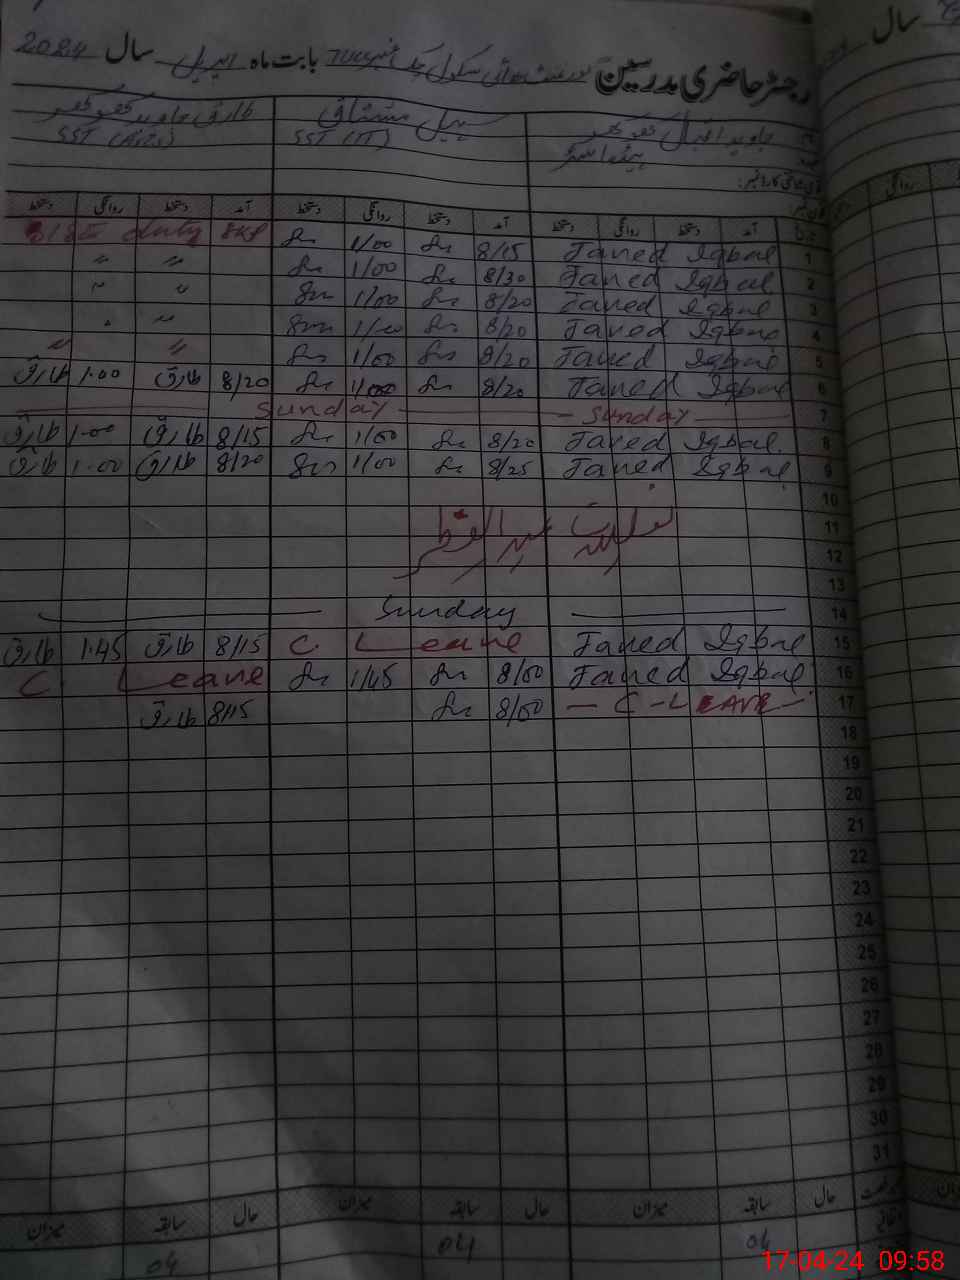 رجسٹر حاضری مدرسین گورنمنٹ ہائی سکول چک نمبر بابت ماہ اپریل سال 2024
سال
جاوید اقبال کھوکھر سہیل مشتاق طارق جاوید کھوکھر
ہیڈ ماسٹر SST (IT) SST (Arts)
روانگی
دستخط روانگی دستخط آمد دستخط روانگی دستخط آمد دستخط روانگی دستخط آمد
1 Javed Iqbal 8/15 1/00 duty
2 Javed Iqbal 8/30 1/00 〃 〃
3 Javed Iqbal 8/20 1/00 〃 〃
4 Javed Iqbal 8/20 1/00 〃
5 Javed Iqbal 8/20 1/00 〃 〃
6 Javed Iqbal 8/20 1/00 8/20 طارق 1.00 طارق
7 Sunday Sunday
8 Javed Iqbal 8/20 1/00 8/15 طارق 1.00 طارق
9 Javed Iqbal 8/25 1/00 8/20 طارق 1.00 طارق
10
11 تعطیلات عید الفطر
12
13
14 Sunday
15 Javed Iqbal C Leave 8/15 طارق 1.45 طارق
16 Javed Iqbal 8/00 1/45 C Leave
17 C-LEAVE 8/00 8/15 طارق
18
19
20
21
22
23
24
25
26
27
28
29
30
31
حال سابقہ میزان حال سابقہ میزان حال سابقہ میزان
04 04 04
17-04-24 09:58